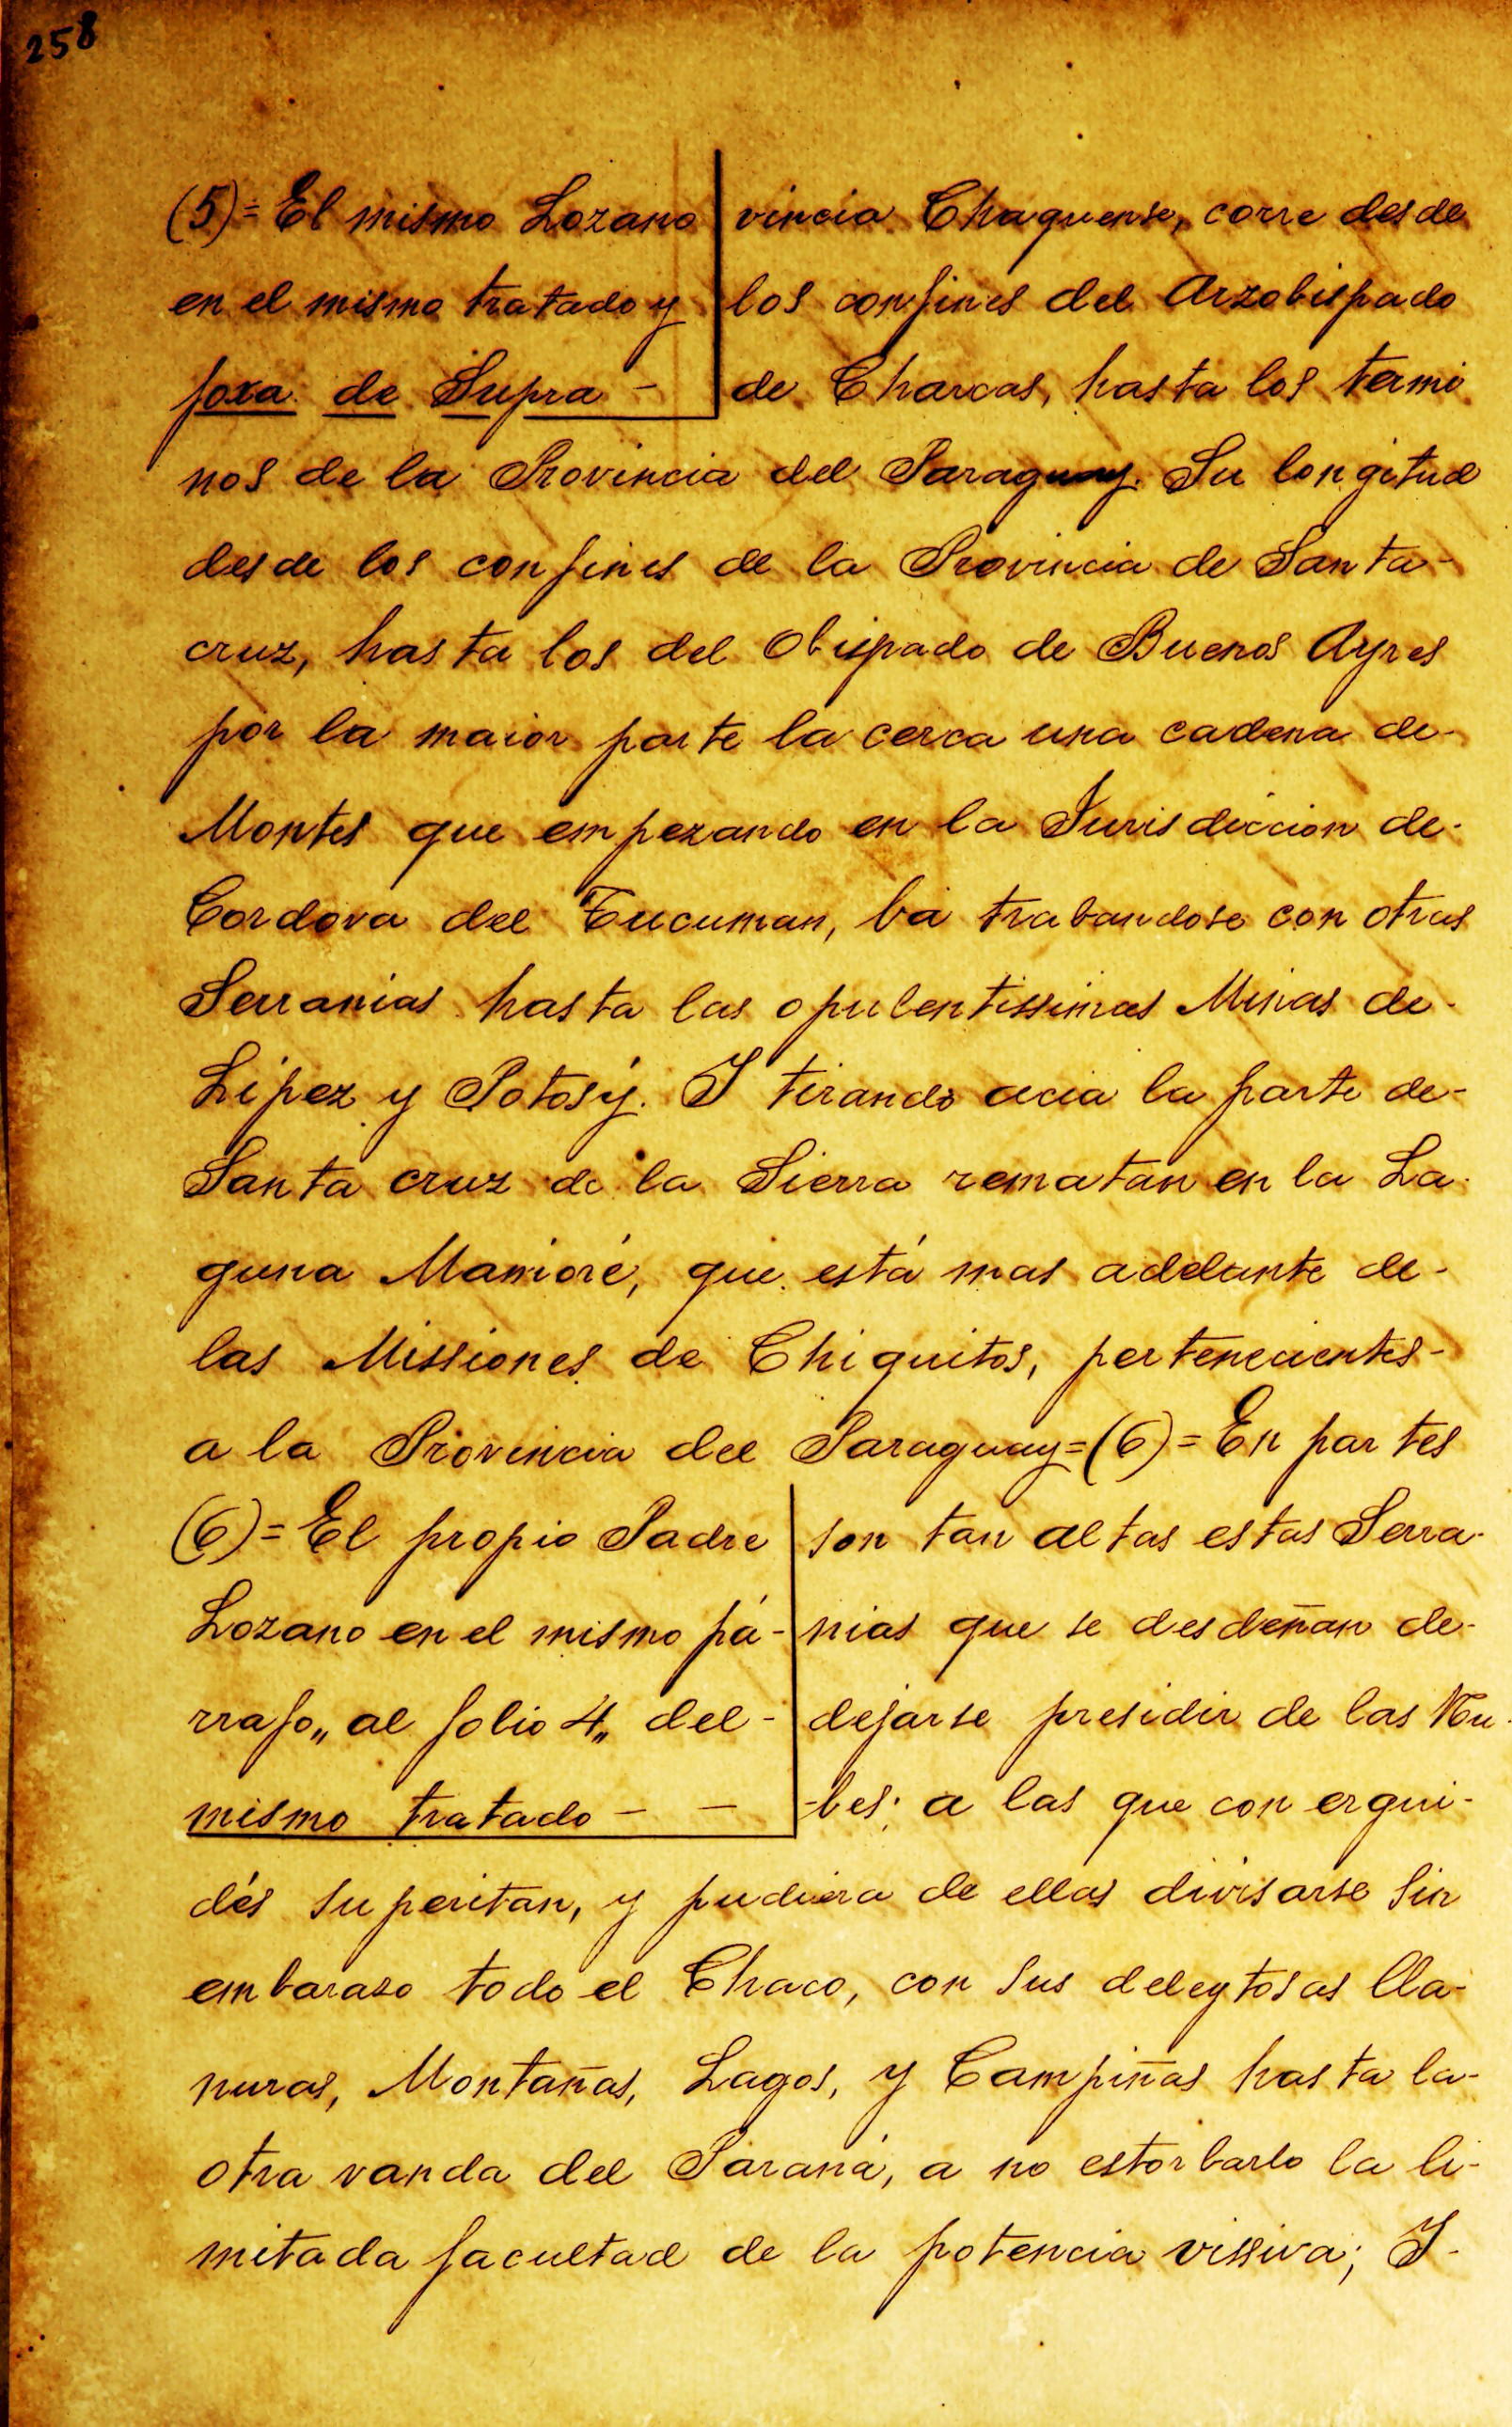 258
(5)= El mismo Lozano
en el mismo tratado y
foxa de Supra -
vincia Chaquense, corre desde
los confines del Arzobispado
de Charcas, hasta los termi
nos de la Provincia del Paraguay. Su longitud
desde los confines de la Provincia de Santa-
cruz, hasta los del Obispado de Buenos Ayres
por la maior parte la cerca una cadena de-
Montes que empezando en la Jurisdiccion de-
Cordova del Tucuman, bá trabandose con otras
Serranias hasta las opulentissimas Minas de-
Lípez y Potosý. I tirando acia la parte de-
Santa cruz de la Sierra rematan en la La-
guna Mamoré, que está mas adelante de-
las Missiones de Chiquitos, pertenecientes-
a la Provincia del Paraguay=(6)= En partes
(6)= El propio Padre
Lozano en el mismo pá-
rrafo,, al folio 4,, del-
mismo tratado - -
son tan altas estas Serra-
nias que se desdeñan de-
dejarse presidir de las Nu-
-bes; a las que con ergui-
dés superitan, y pudiera de ellas divisarse sin
embaraso todo el Chaco, con sus deleytosas lla-
nuras, Montañas, Lagos, y Campiñas hasta la-
otra vanda del Paraná, a no estorbarlo la li-
mitada facultad de la potencia vissiva; I-